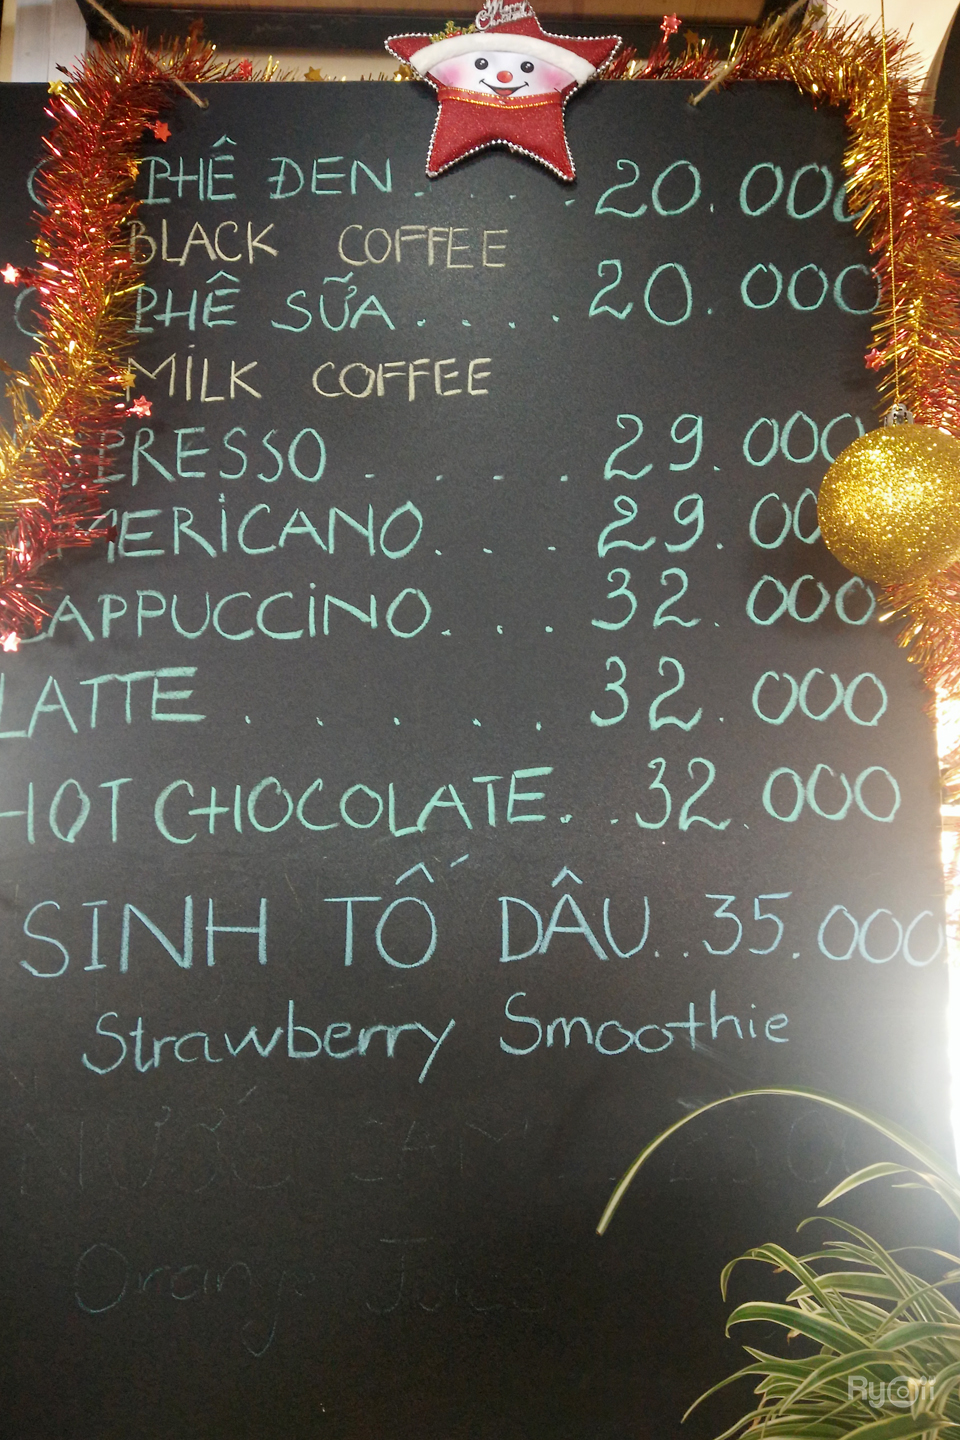 Merry
Christmas
PHÊ ĐEN . . . . 20.000
BLACK COFFEE
PHÊ SỮA . . . . 20.000
MILK COFFEE
PRESSO . . . . 29.000
MERICANO . . . 29.000
CAPPUCCINO . . . 32.000
LATTE . . . . . 32.000
HOT CHOCOLATE . . 32.000
SINH TỐ DÂU . . 35.000
Strawberry Smoothie
NƯỚC
Orange Juice